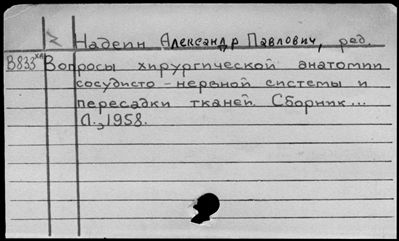 Надеин Александр Павлович, ред.
В833 Вопросы хирургической анатомии
сосудисто-нервной системы и
пересадки тканей. Сборник...
Л., 1958.